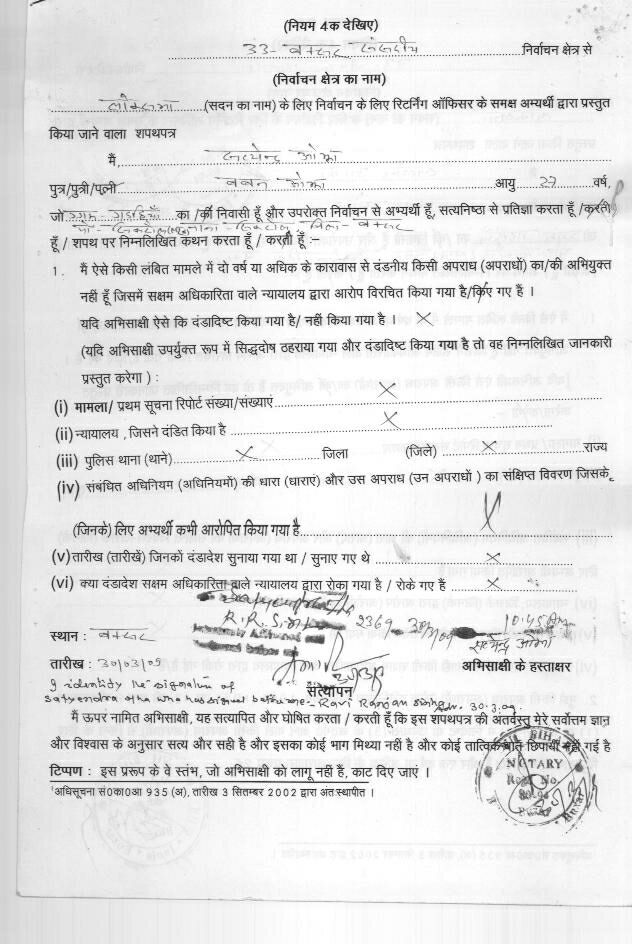 (नियम 4क देखिए)
33- बक्सर संसदीय निर्वाचन क्षेत्र से
(निर्वाचन क्षेत्र का नाम)
लोकसभा (सदन का नाम) के लिए निर्वाचन के लिए रिटर्निंग ऑफिसर के समक्ष अभ्यर्थी द्वारा प्रस्तुत
किया जाने वाला शपथपत्र
मैं, सत्येन्द्र ओझा
पुत्र/पुत्री/पत्नी बबन ओझा आयु 27 वर्ष,
जो ग्राम- का /की निवासी हूँ और उपरोक्त निर्वाचन से अभ्यर्थी हूँ, सत्यनिष्ठा से प्रतिज्ञा करता हूँ /करती
जिला- बक्सर
हूँ / शपथ पर निम्नलिखित कथन करता हूँ / करती हूँ :-
1. मैं ऐसे किसी लंबित मामले में दो वर्ष या अधिक के कारावास से दंडनीय किसी अपराध (अपराधों) का/की अभियुक्त
नहीं हूँ जिसमें सक्षम अधिकारिता वाले न्यायालय द्वारा आरोप विरचित किया गया है/किए गए हैं ।
यदि अभिसाक्षी ऐसे कि दंडादिष्ट किया गया है/ नहीं किया गया है । X
(यदि अभिसाक्षी उपर्युक्त रूप में सिद्धदोष ठहराया गया और दंडादिष्ट किया गया है तो वह निम्नलिखित जानकारी
प्रस्तुत करेगा ) :
(i) मामला/ प्रथम सूचना रिपोर्ट संख्या/संख्याएं X
(ii) न्यायालय , जिसने दंडित किया है X
(iii) पुलिस थाना (थाने) X जिला (जिले) X राज्य
(iv) संबंधित अधिनियम (अधिनियमों) की धारा (धाराएं) और उस अपराध (उन अपराधों ) का संक्षिप्त विवरण जिसके
(जिनके) लिए अभ्यर्थी कभी आरोपित किया गया है X
(v) तारीख (तारीखें) जिनको दंडादेश सुनाया गया था / सुनाए गए थे X
(vi) क्या दंडादेश सक्षम अधिकारिता वाले न्यायालय द्वारा रोका गया है / रोके गए हैं X
R.R. 2369 10.45 Am
स्थान : बक्सर
सत्येन्द्र ओझा
तारीख : 30/03/09
सत्यापन अभिसाक्षी के हस्ताक्षर
I identity the signature of
satyendra ojha who has signed before me - Ravi Ranjan 30.3.09
मैं ऊपर नामित अभिसाक्षी, यह सत्यापित और घोषित करता / करती हूँ कि इस शपथपत्र की अंतर्वस्तु मेरे सर्वोत्तम ज्ञान
और विश्वास के अनुसार सत्य और सही है और इसका कोई भाग मिथ्या नहीं है और कोई तात्विक बात छिपायी नहीं गई है
टिप्पण : इस प्ररूप के वे स्तंभ, जो अभिसाक्षी को लागू नहीं है, काट दिए जाएं ।
¹अधिसूचना सं0का0आ 935 (अ), तारीख 3 सितम्बर 2002 द्वारा अंतःस्थापित ।
NOTARY